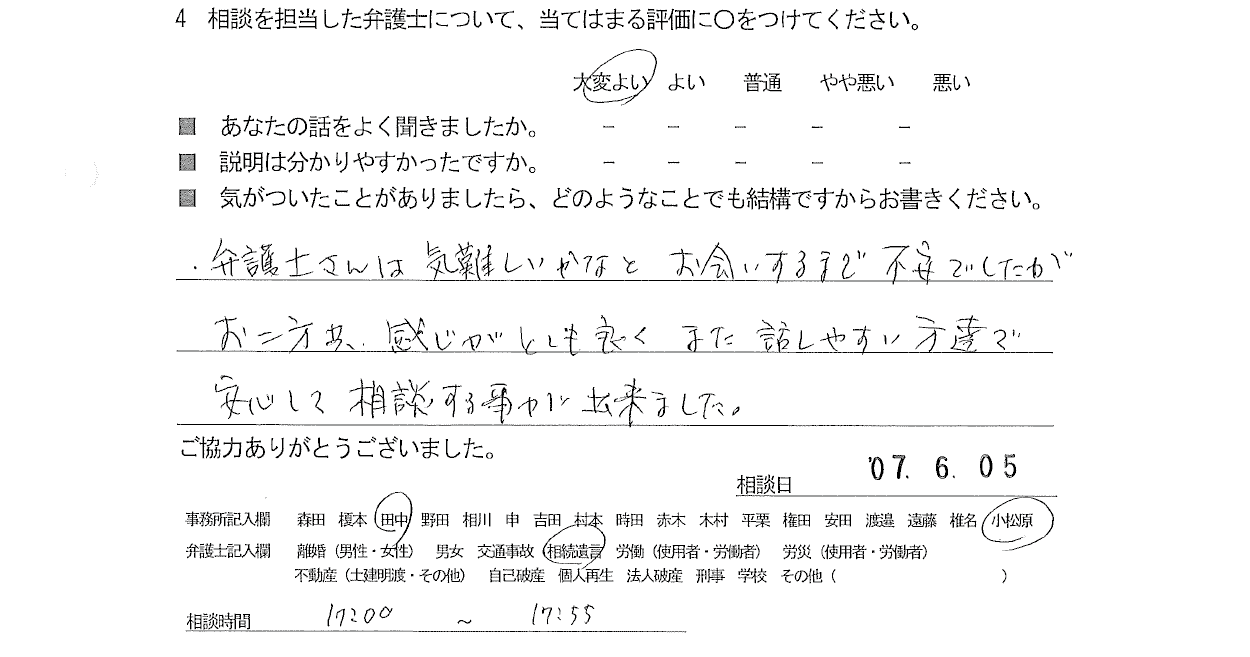 4 相談を担当した弁護士について、当てはまる評価に○をつけてください。
大変よい よい 普通 やや悪い 悪い
■ あなたの話をよく聞きましたか。 − − − − −
■ 説明は分かりやすかったですか。 − − − − −
■ 気がついたことがありましたら、どのようなことでも結構ですからお書きください。
・弁護士さんは気難しいかなと お会いするまで 不安でしたが
お二方共、感じがとても良く また 話しやすい方達で
安心して 相談する事が出来ました。
ご協力ありがとうございました。
相談日 '07. 6. 05
事務所記入欄 森田 榎本 田中 野田 相川 申 吉田 村本 時田 赤木 木村 平栗 権田 安田 渡邉 遠藤 椎名 小松原
弁護士記入欄 離婚（男性・女性） 男女 交通事故 相続遺言 労働（使用者・労働者） 労災（使用者・労働者）
不動産（土建明渡・その他） 自己破産 個人再生 法人破産 刑事 学校 その他（ ）
相談時間 17:00 ～ 17:55